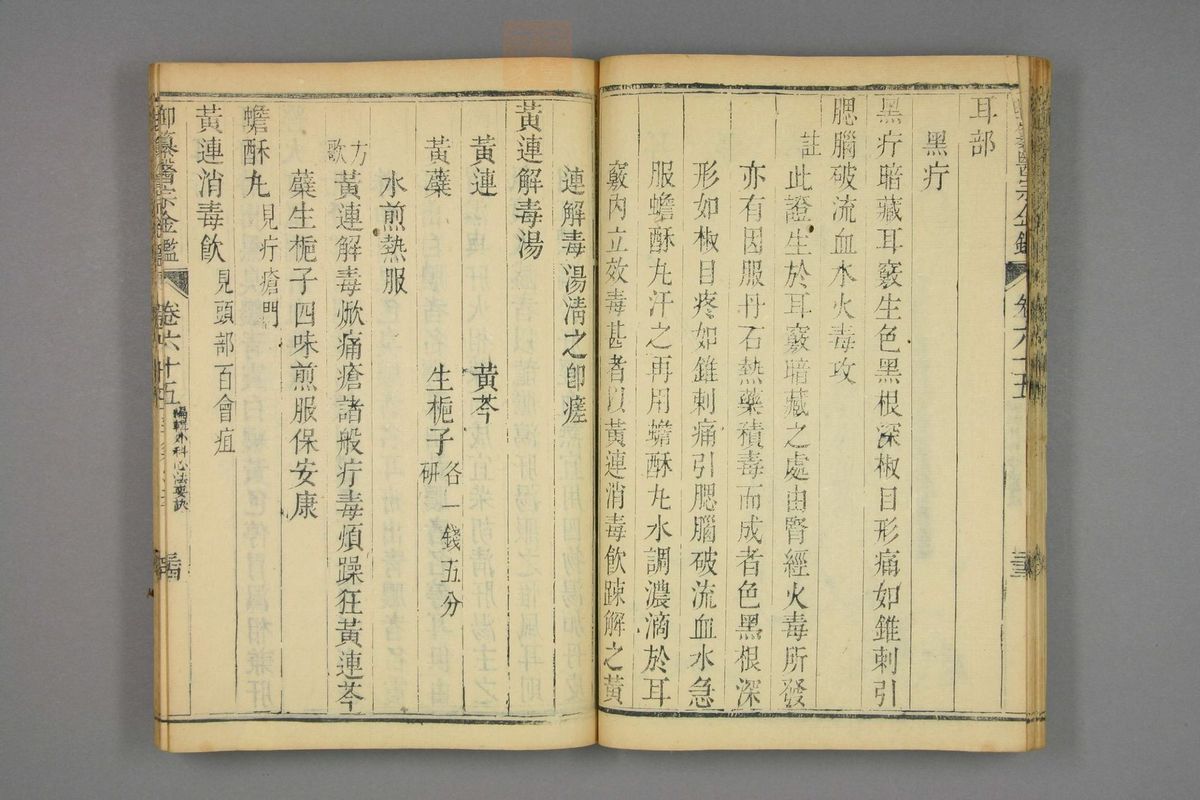 耳部
黑疔
黑疔暗藏耳竅生色黑根深椒目形痛如錐刺引
腮腦破流血水火毒攻
註此證生於耳竅暗藏之處由腎經火毒所發
亦有因服丹石熱藥積毒而成者色黑根深
形如椒目疼如錐刺痛引腮腦破流血水急
服蟾酥丸汗之再用蟾酥丸水調濃滴於耳
竅內立效毒甚者以黃連消毒飲踈解之黃
連解毒湯清之卽瘥
黃連解毒湯
黃連 黃芩
黃蘗 生梔子研 各一錢五分
水煎熱服
方歌 黃連解毒焮痛瘡諸般疔毒煩躁狂黃連芩
蘗生梔子四味煎服保安康
蟾酥丸 見疔瘡門
黃連消毒飮 見頭部百會疽
御纂醫宗金鑑 卷六十五 編輯外科心法要訣